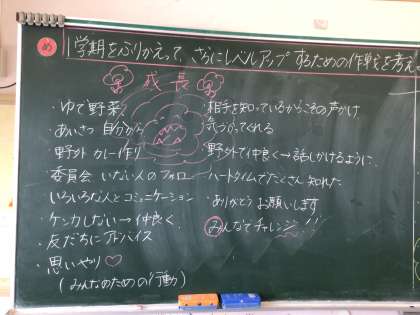 め 1学期をふりかえって、さらにレベルアップするための作戦を考え
成長
・ゆで野菜
・あいさつ 自分から
・野外 カレー作り
・委員会 いない人のフォロー
・いろいろな人とコミュニケーション
・ケンカしない→仲良く
・友だちにアドバイス
・思いやり♡
(みんなのための行動)
・相手を知っているからこその声かけ
気づかってくれる
・野外で仲良く→話しかけるように、
・ハートタイムでたくさん知れた
・ありがとう お願いします
・みんなでチャレンジ!!